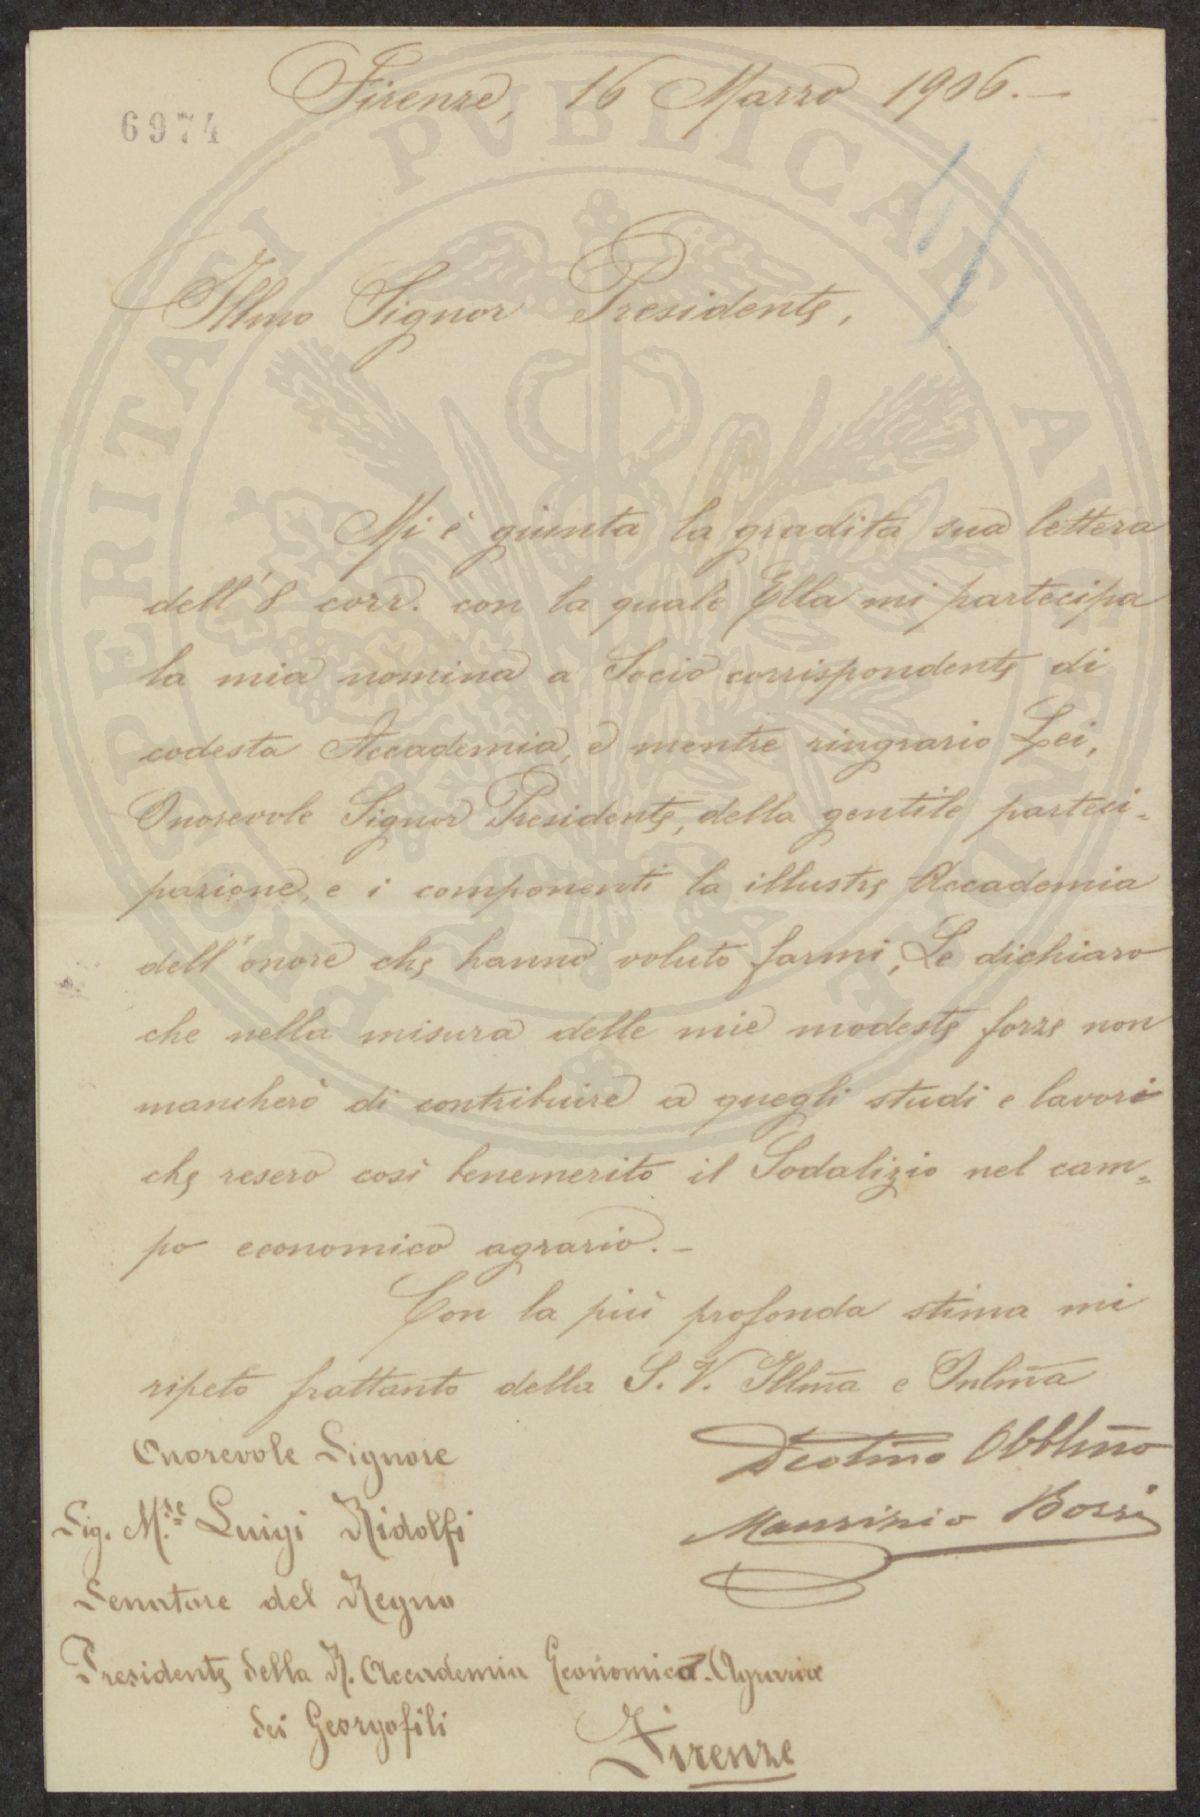 Firenze, 16 Marzo 1906. —
6974
Illmo Signor Presidente,
Mi è giunta la gradita sua lettera
dell'8 corr. con la quale Ella mi partecipa
la mia nomina a Socio corrispondente di
codesta Accademia, e mentre ringrazio Lei,
Onorevole Signor Presidente, della gentile parteci-
pazione, e i componenti la illustre Accademia
dell'onore che hanno voluto farmi, Le dichiaro
che nella misura delle mie modeste forze non
mancherò di contribuire a quegli studi e lavori
che resero così benemerito il Sodalizio nel cam-
po economico agrario. —
Con la più profonda stima mi
ripeto frattanto della S. V. Illma e Onlma
Devotmo Obblmo
Maurizio Bossi
Onorevole Signore
Sig. M.se Luigi Ridolfi
Senatore del Regno
Presidente della R. Accademia Economica-Agraria
dei Georgofili
Firenze
PROSPERITATI PVBLICAE AVGENDAE